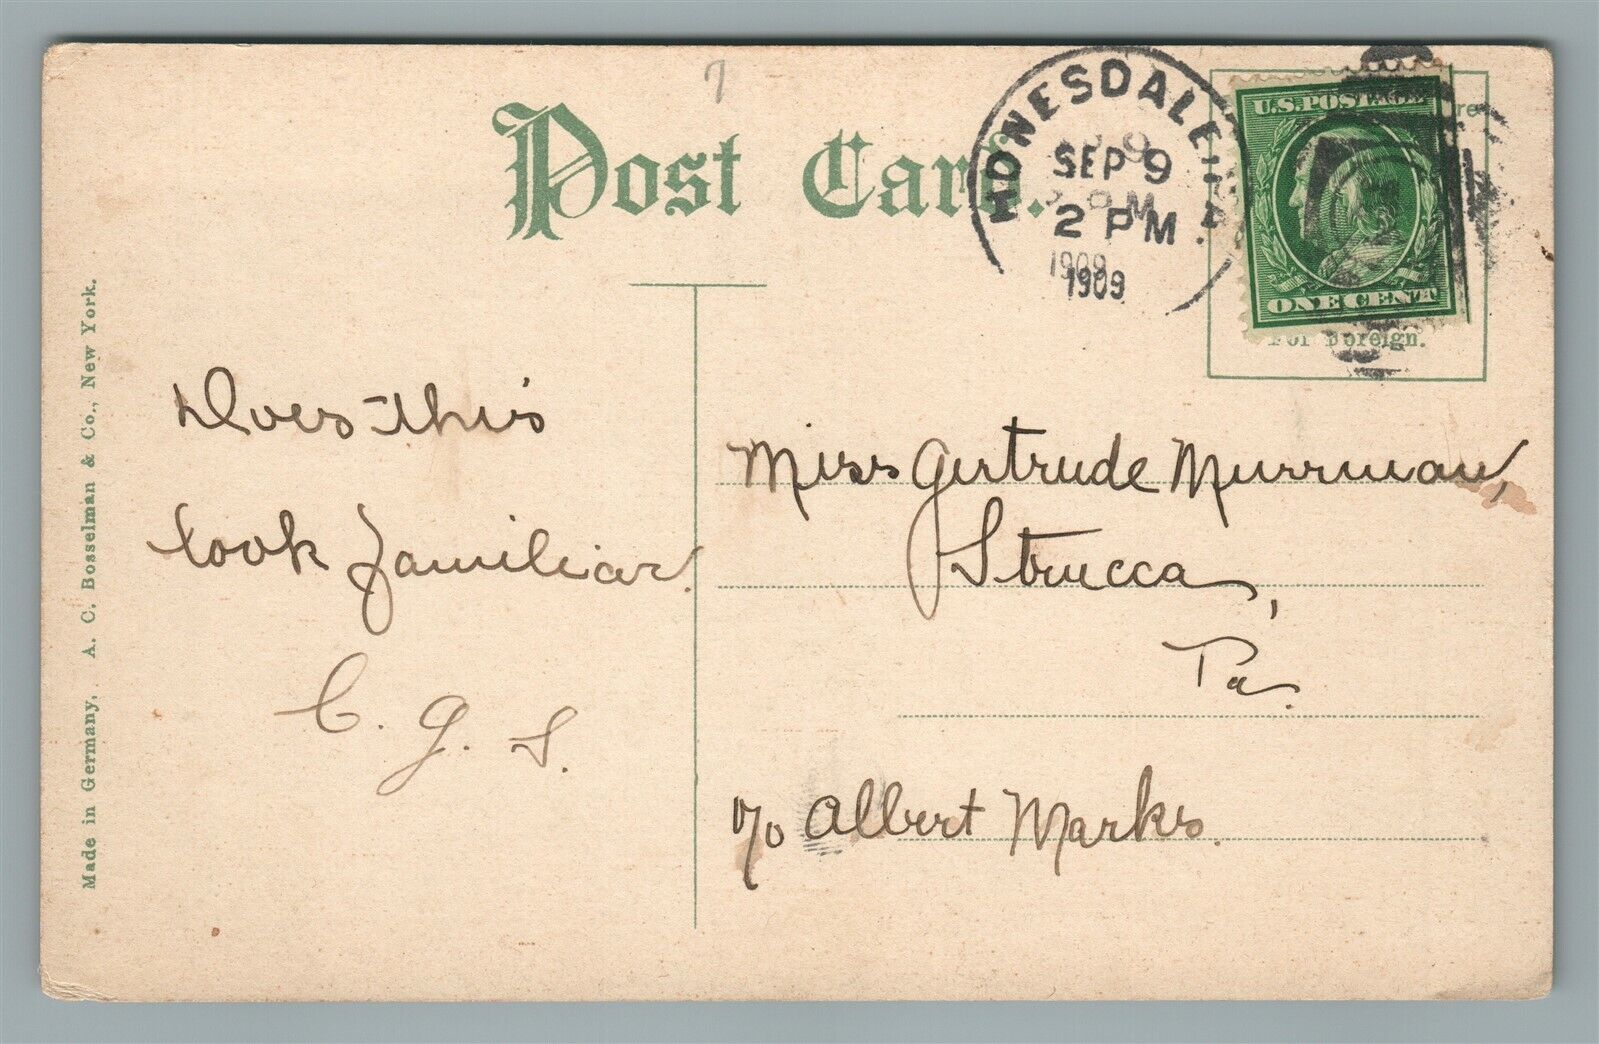 7
Post Card.
HONESDALE, PA.
SEP 9
2 PM
1909
1909
U.S. POSTAGE
ONE CENT
For Foreign.
Does this
look familiar.
C. G. S.
Miss Gertrude Murrman,
Strucca,
Pa.
c/o Albert Marks.
Made in Germany, A. C. Bosselman & Co., New York.